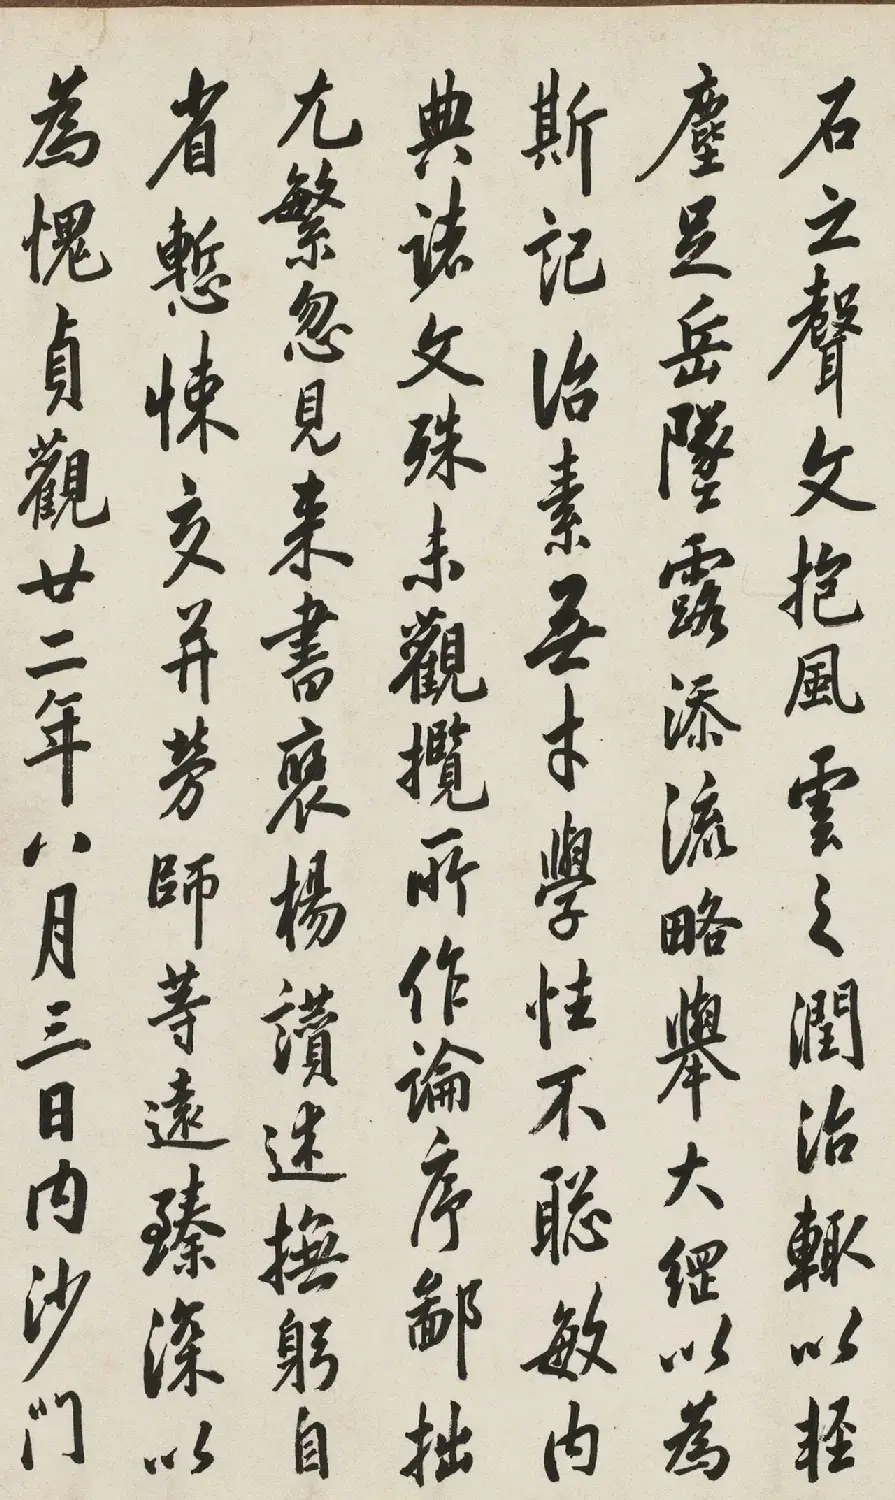 石之聲文抱風雲之潤治輒以輕
塵足岳墜露添流略舉大綱以為
斯記治素無才學性不聡敏内
典諸文殊未觀攬所作論序鄙拙
尤繁忽見来書褒楊讃述撫躬自
省慙悚交并勞師等遠臻深以
為愧貞觀廿二年八月三日内沙門